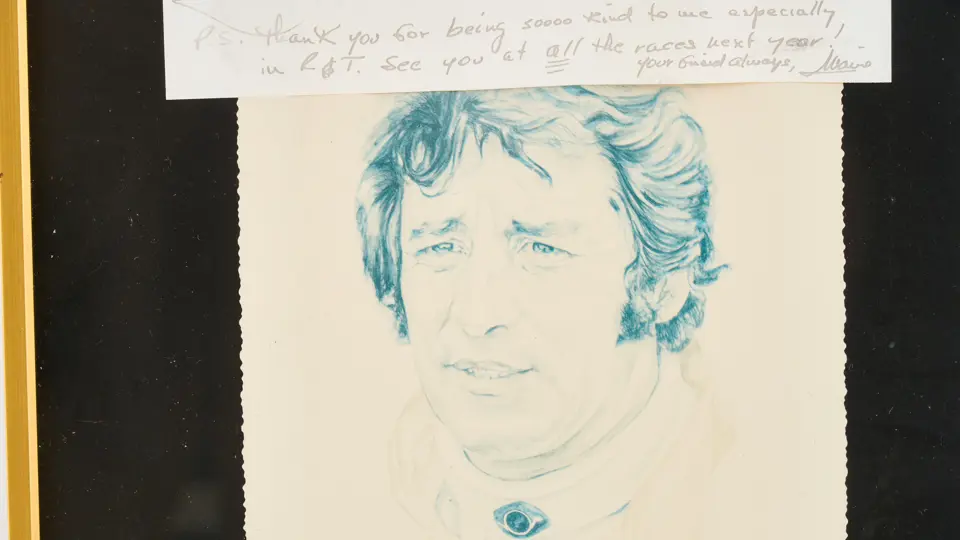 P.S. Thank you for being soooo kind to me especially,
in R&T. See you at all the races next year!
your friend always,